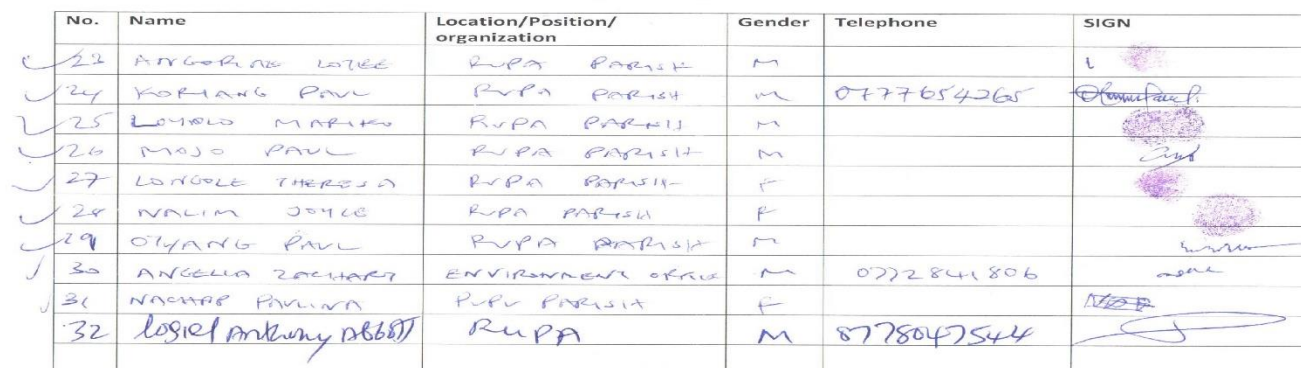 No. Name Location/Position/organization Gender Telephone SIGN
23 ANGORINE LOTEE RUPA PARISH M
24 KORIANG PAUL RUPA PARISH M 0777654265
25 LOYOLO MARIKO RUPA PARISH M
26 MOJO PAUL RUPA PARISH M
27 LONGOLE THERESA RUPA PARISH F
28 NALIM JOYCE RUPA PARISH F
29 OTYANG PAUL RUPA PARISH M
30 ANGELLA ZACHARY ENVIRONMENT OFFICE M 0772841806
31 PAULINA RUPU PARISH F
32 Logiel Anthony RUPA M 0778047544